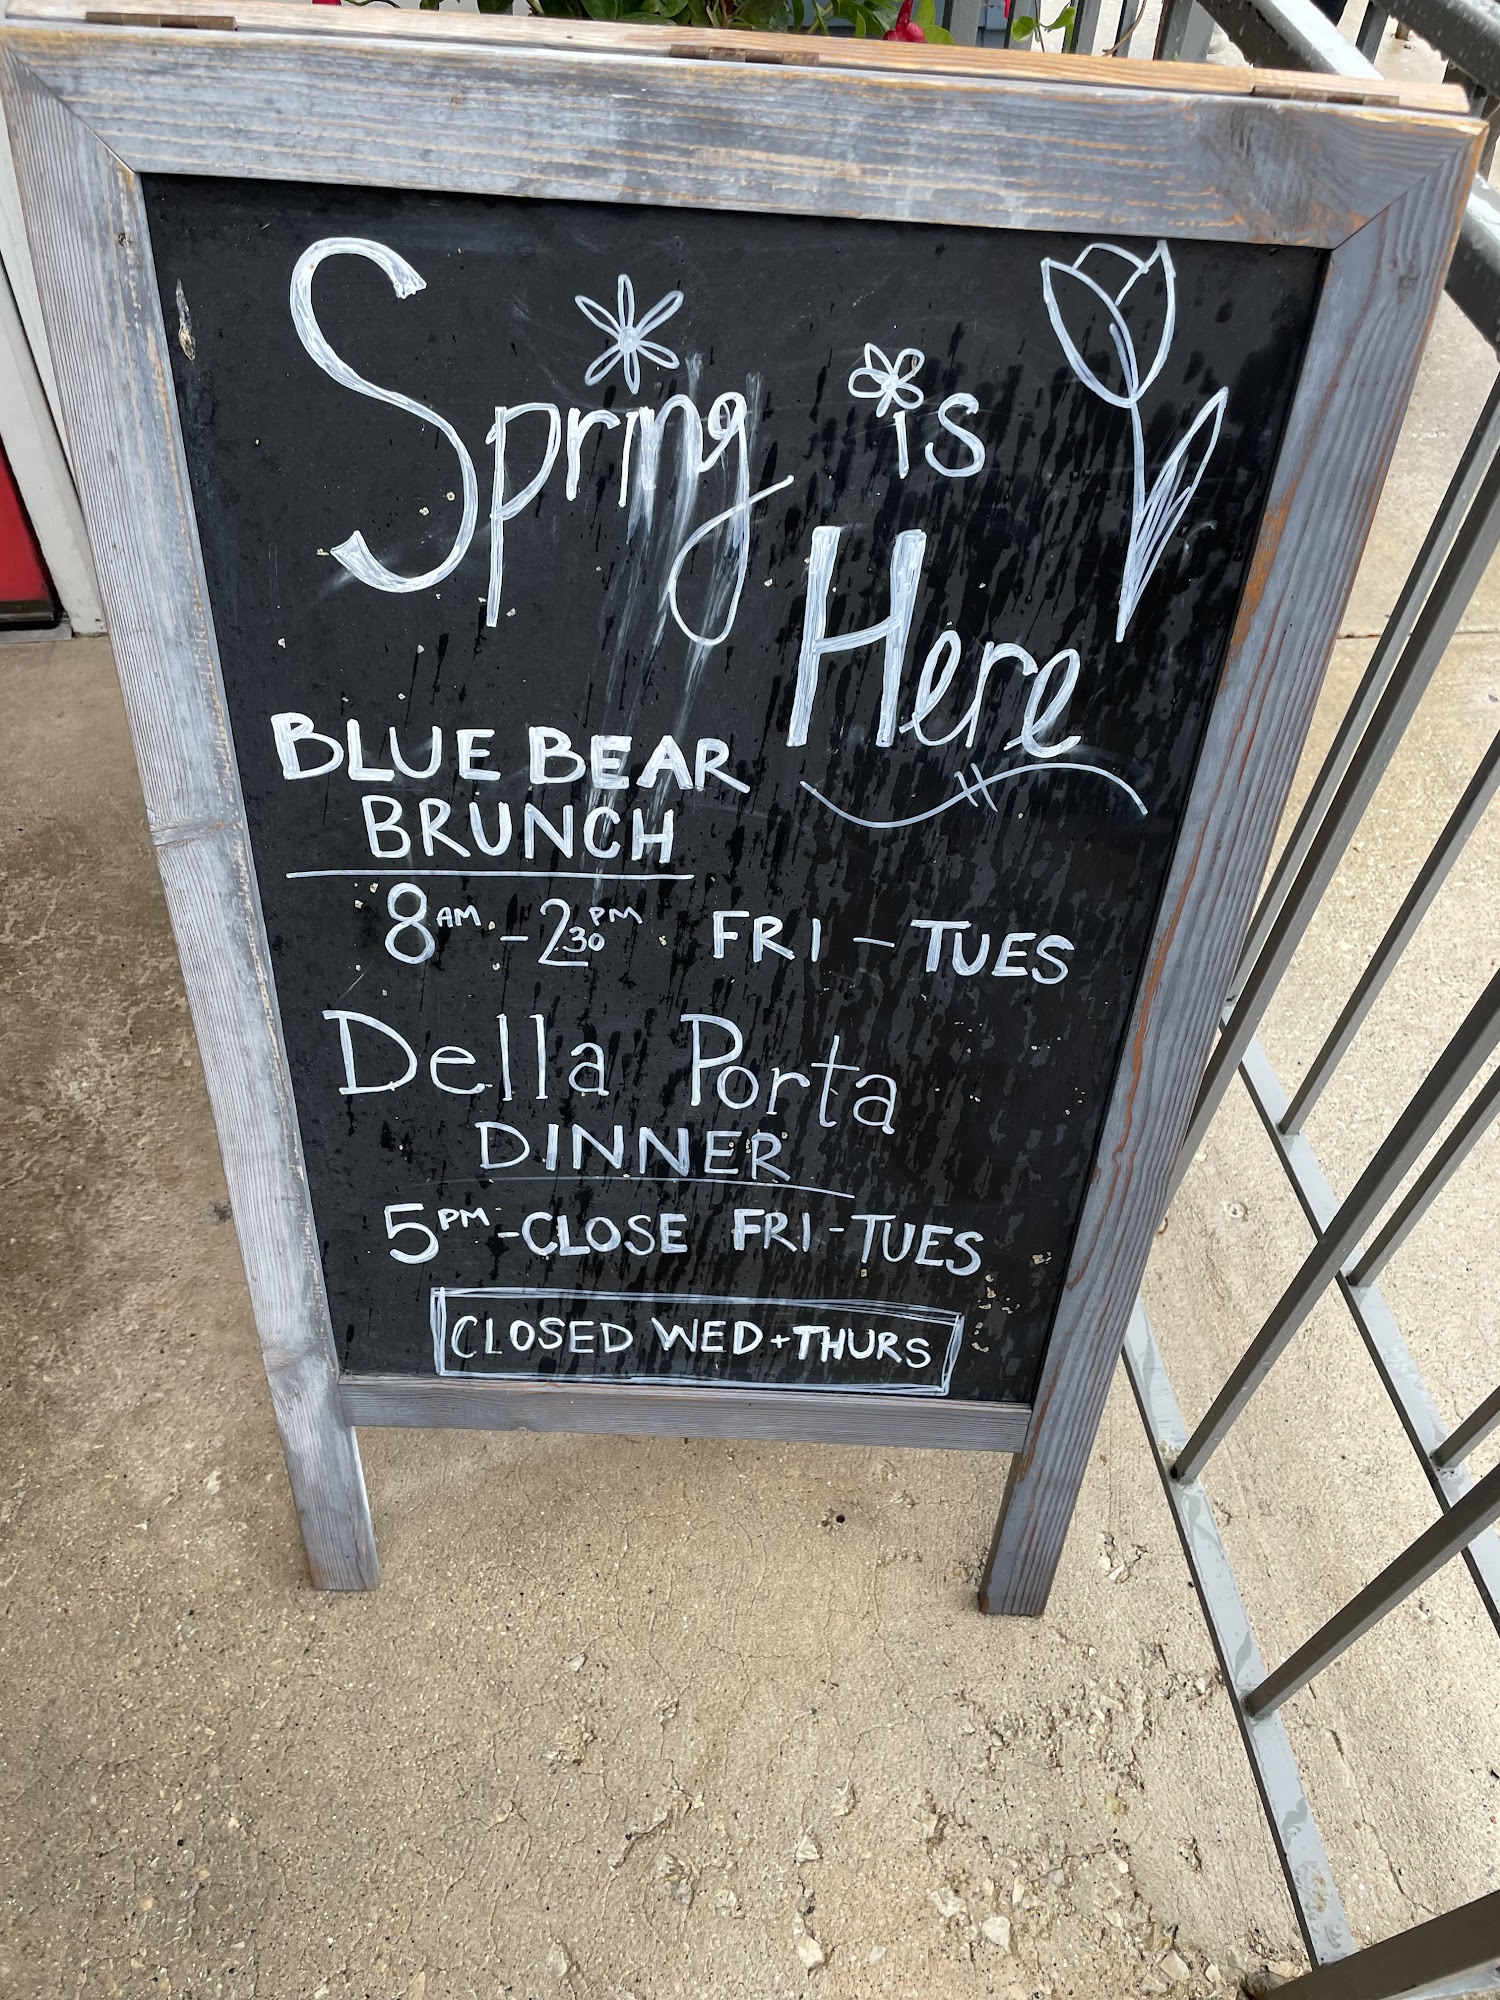 Spring is
Here
BLUE BEAR
BRUNCH
8AM - 230PM FRI - TUES
Della Porta
DINNER
5PM - CLOSE FRI - TUES
CLOSED WED + THURS